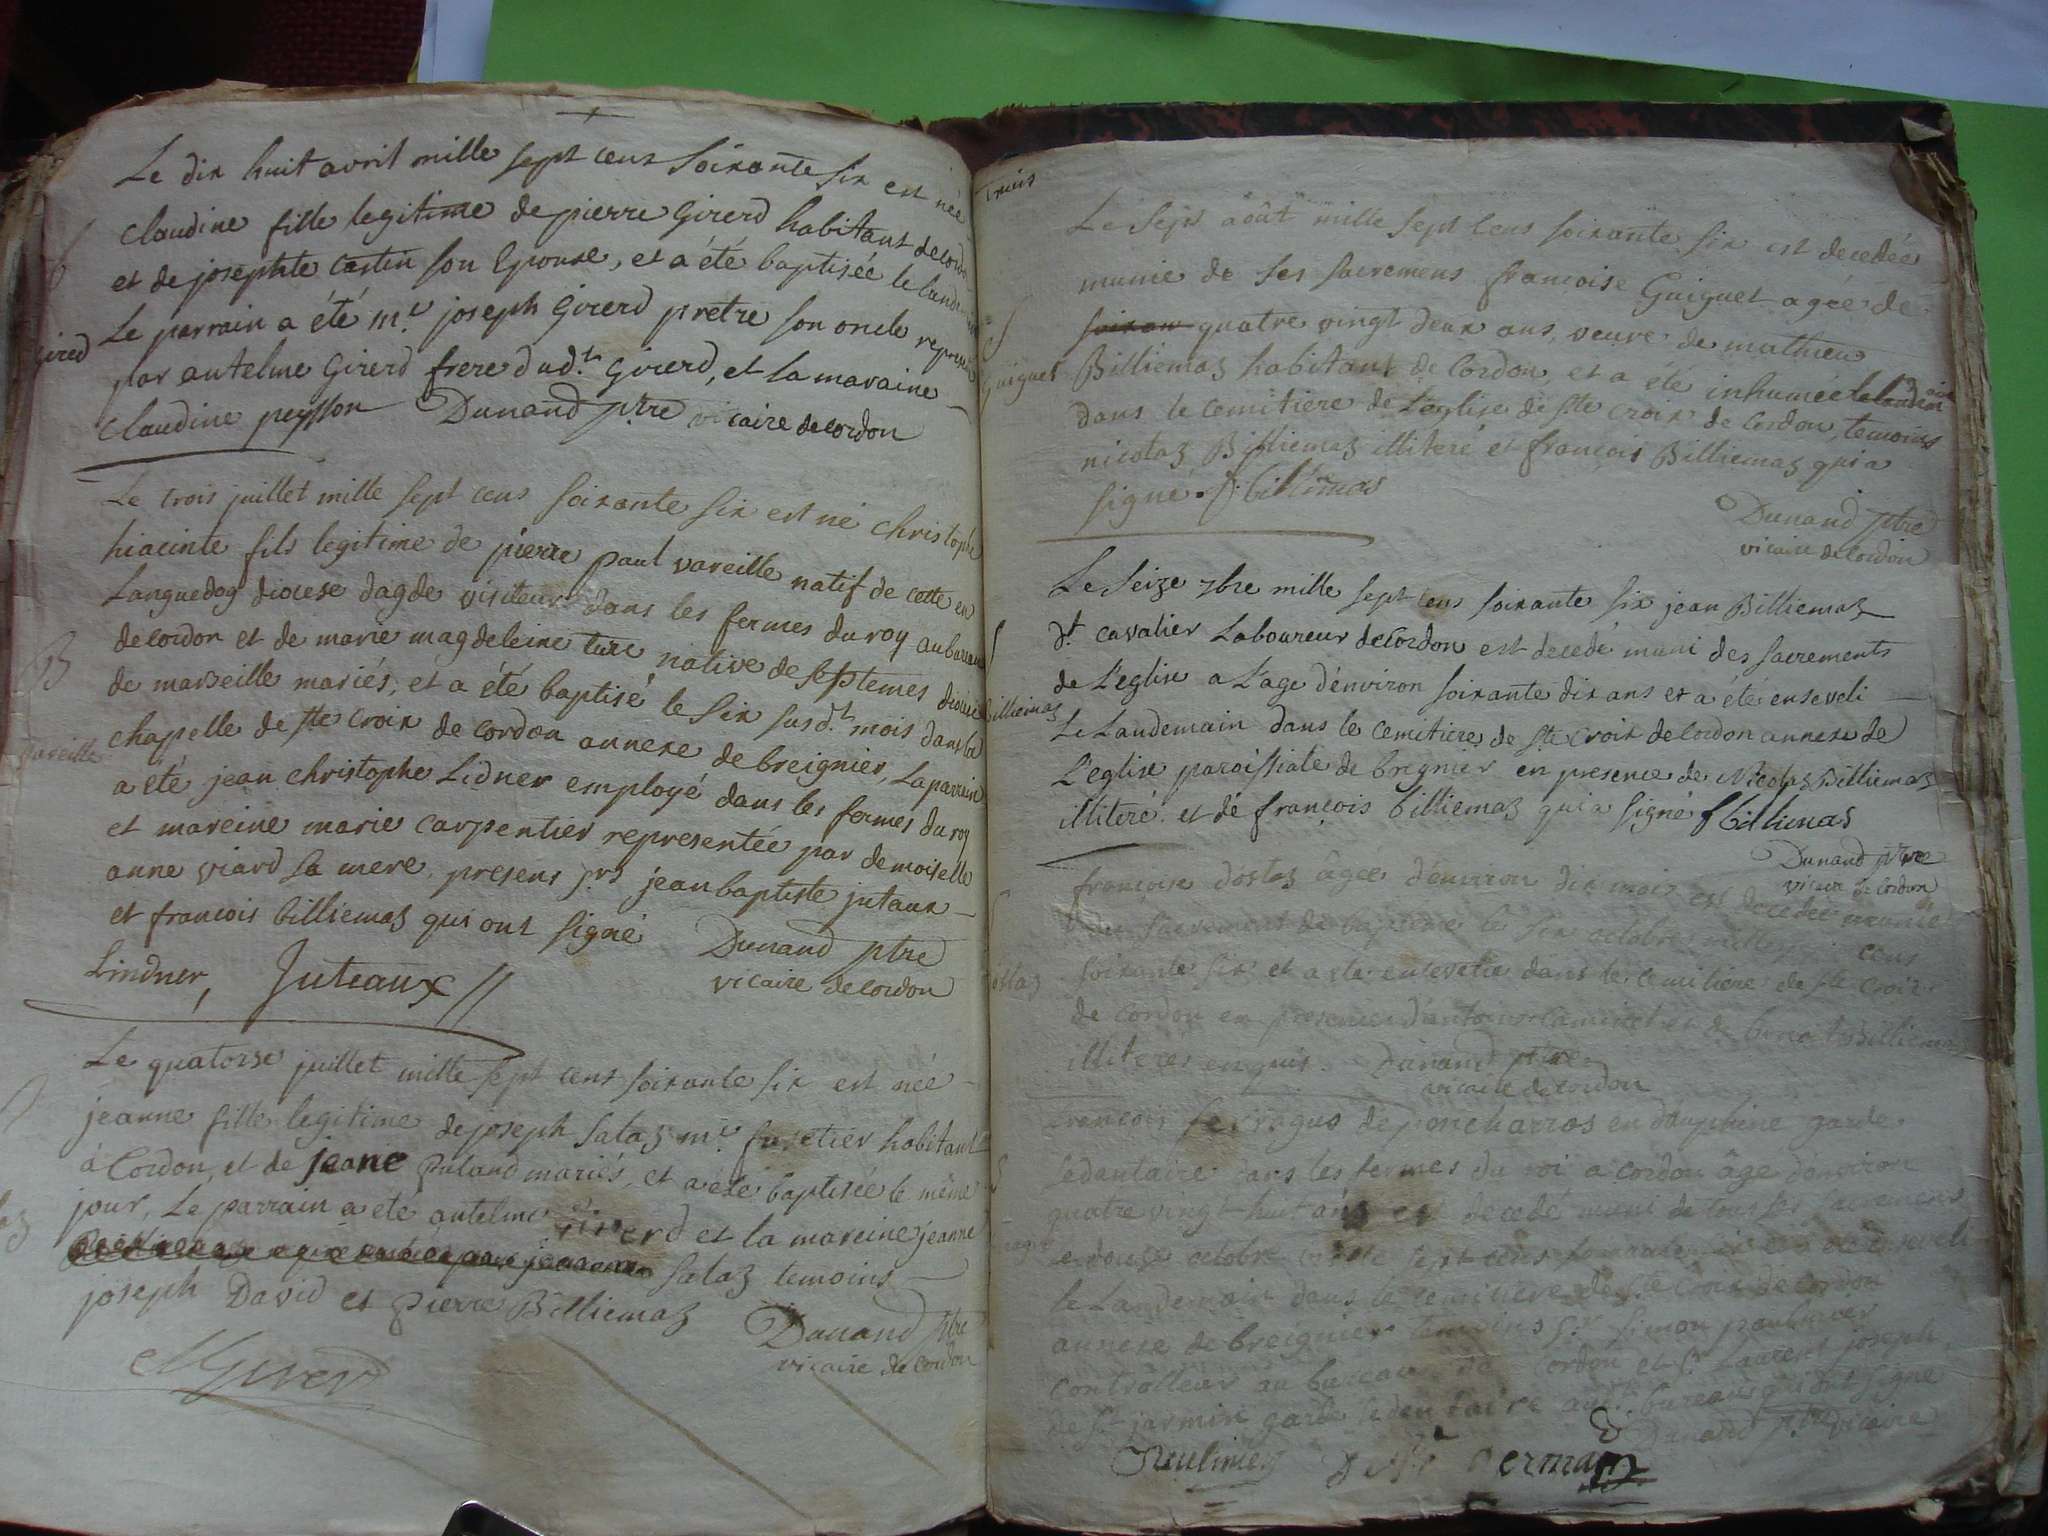 Le dix huit avril mille sept cens soixante six est née
claudine fille legitime de pierre Girerd habitant de cordon
et de josephte castin son Epouse, et a été baptisée le landemain
Le parrain a été mr. joseph Girerd pretre son oncle represente
par antelme Girerd frere dudt. Girerd, et la maraine
claudine peysson Dunand ptre vicaire de cordon
Girerd
Le trois juillet mille sept cens soixante six est né christophe
hiacinte fils legitime de pierre paul vareille natif de cette en
Languedog diocese dagde visiteur dans les fermes du roy au bureau
de cordon et de marie magdeleine turc native de septemes diocese
de marseille mariés, et a été baptisé le six susdt. mois dans la
chapelle de ste croix de cordon annexe de breignier, Le parrain
a eté jean christophe Lidner employé dans les fermes du roy
et mareine marie carpentier representée par demoiselle
anne viard sa mere, presens jean baptiste jutaux
et francois billiemaz qui ont signé Dunand ptre
vicaire de cordon
Lindner, Juteaux
B
vareille
Le quatorse juillet mille sept cens soixante six est née
jeanne fille legitime de joseph Salaz mr. habitant
à Cordon, et de jeane mariés, et a été baptisée le même
jour, Le parrain a eté antelme Girerd et la mareine jeanne
Salaz temoins
joseph David et pierre Billiemaz
Dunand ptre
vicaire de cordon
Girerd
Le sept août mille sept cens soixante six est decedée
munie de ses sacremens françoise Guiguet agée de
quatre vingt deux ans, veuve de mathieu
Billiemaz habitant de Cordon, et a été inhumée
dans le cemitiere de L'eglise de ste croix de Cordon, temoins
nicolaz Billiemaz illiteré et françois Billiemaz qui a
signé. f. billimas
Dunand ptre
vicaire de cordon
S
Guiguet
Le Seize 7bre mille sept cens soixante six jean Billiemaz
dt. cavalier Laboureur de Cordon est decedé muni des sacrements
de L'eglise a L'age d'environ soixante dix ans et a été enseveli
Le Landemain dans le cemitiere de ste croix de Cordon annexe de
L'eglise paroissiale de bregnier en presence de Nicolaz Billiemaz
illiteré et de françois billiemaz qui a signé f billimas
Dunand ptre
vicaire de cordon
S
Billiemaz
françoise dostaz âgée d'environ dix mois est decedée munie
du sacrement de bapteme le six octobre mille sept cens
soixante six et a été ensevelie dans le cemitiere de ste croix
de cordon en presence d'antoine et de Billiemaz
illiterés enquis. Dunand ptre
vicaire de cordon
françois ferragus de poncharros en dauphiné garde
sedantaire dans les fermes du roi a cordon âgé d'environ
quatre vingt huit ans est decedé muni de tous ses sacremens
le douze octobre mille sept cens soixante six et a été enseveli
le Landemain dans le cemitiere de ste croix de cordon
annexe de breignier temoins sr. simon paulmier
controlleur au bureau de Cordon et sr. Laurens joseph
de st jarmin garde sedentaire audt. bureau qui ont signé
Dunand ptre vicaire